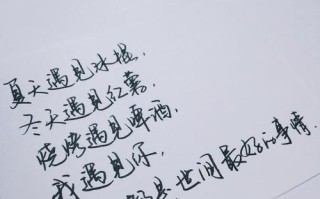 夏天遇见冰棍.
冬天遇见红薯.
烧烤遇见啤酒.
我遇见你.
都是世间最好的事情.